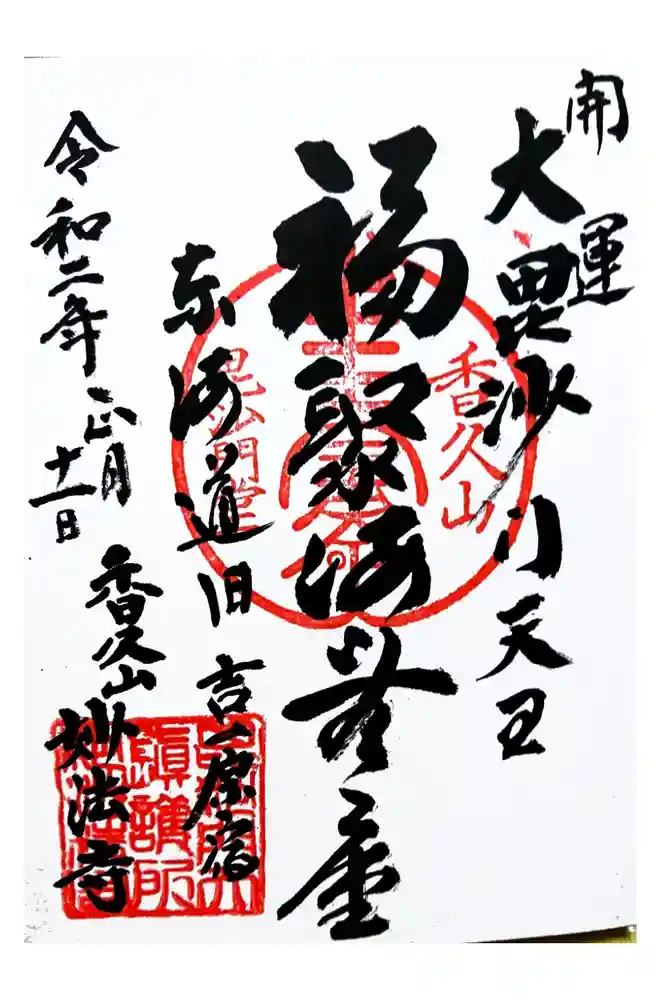 開運
大毘沙門天王
福聚海無量
東海道旧吉原宿
香久山妙法寺
令和二年正月
十一日
香久山
毘沙門堂